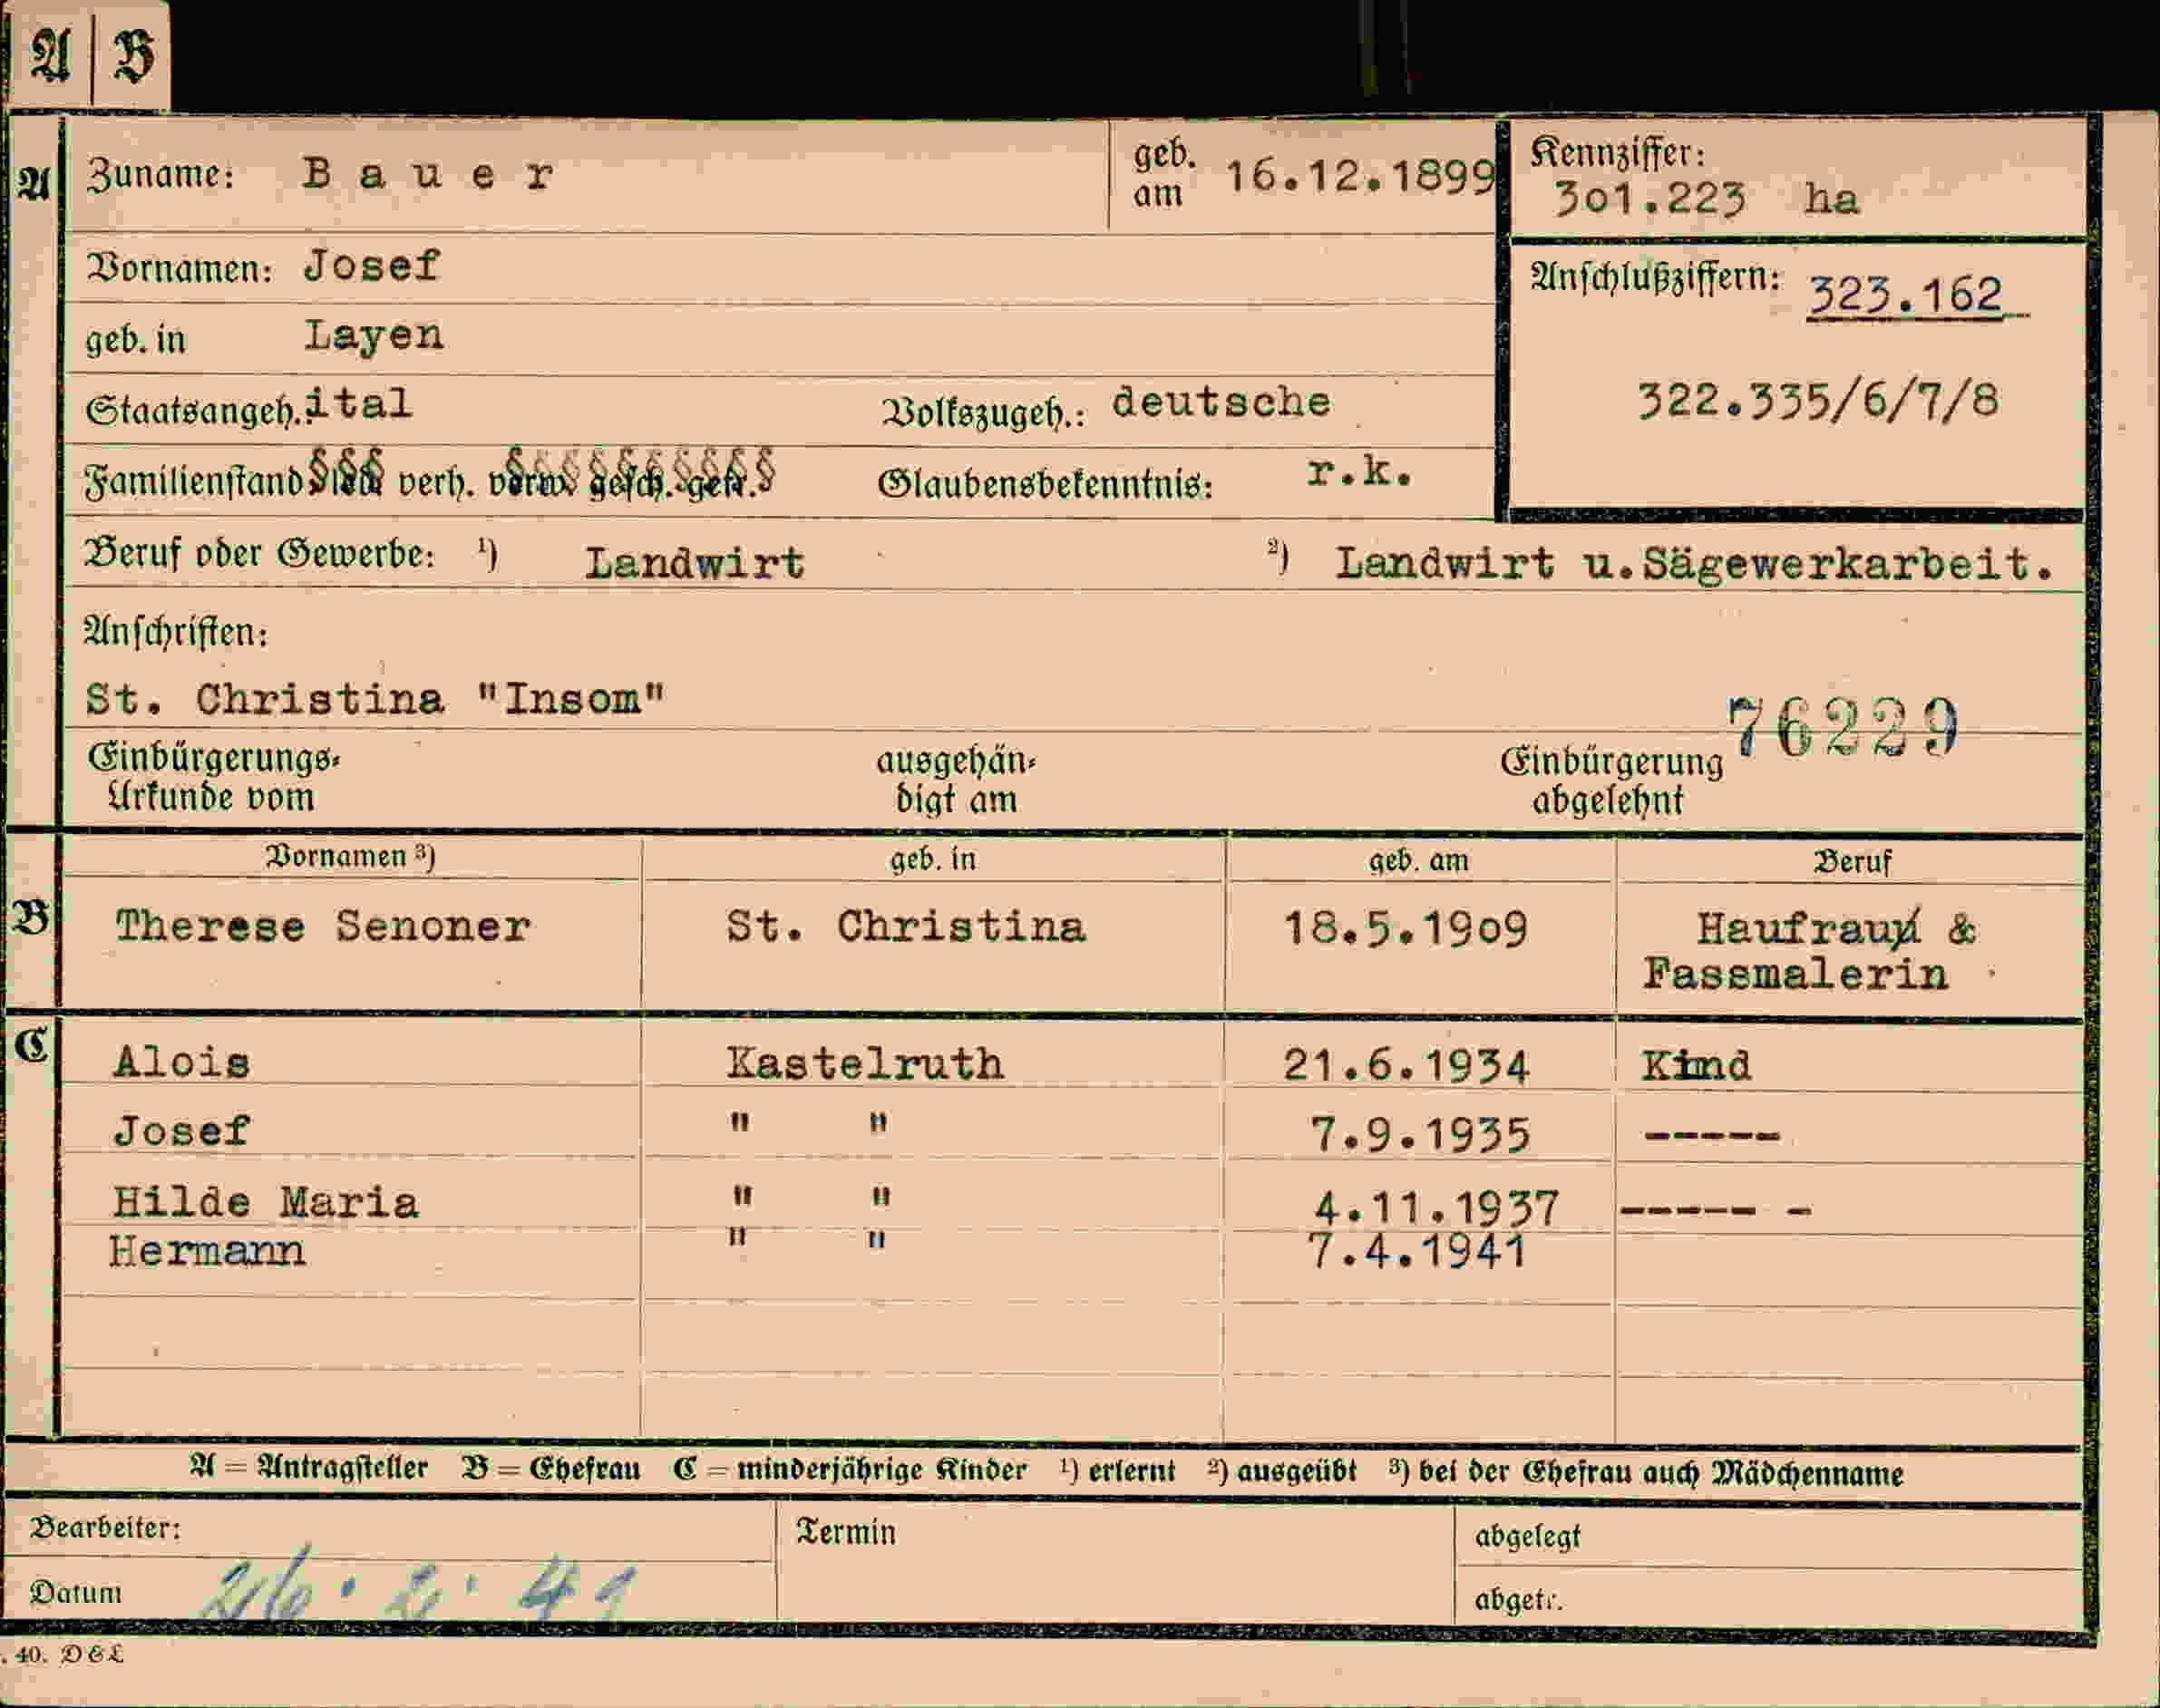 A B
A Zuname: Bauer geb. am 16.12.1899
Kennziffer:
301.223 ha
Vornamen: Josef
Anschlußziffern: 323.162
geb. in Layen
Staatsangeh.: ital Volkszugeh.: deutsche
322.335/6/7/8
Familienstand led. verh. verw. gesch. getr. Glaubensbekenntnis: r.k.
Beruf oder Gewerbe: ¹) Landwirt ²) Landwirt u.Sägewerkarbeit.
Anschriften:
St. Christina "Insom"
76229
Einbürgerungs- ausgehän- Einbürgerung
Urkunde vom digt am abgelehnt
Vornamen ³) geb. in geb. am Beruf
B Therese Senoner St. Christina 18.5.1909 Haufrau &
Fassmalerin
C Alois Kastelruth 21.6.1934 Kind
Josef " " 7.9.1935 -----
Hilde Maria " " 4.11.1937 ----- -
Hermann " " 7.4.1941
A = Antragsteller B = Ehefrau C = minderjährige Kinder ¹) erlernt ²) ausgeübt ³) bei der Ehefrau auch Mädchenname
Bearbeiter: Termin abgelegt
Datum 26. 2. 41 abgetr.
. 40. D&L